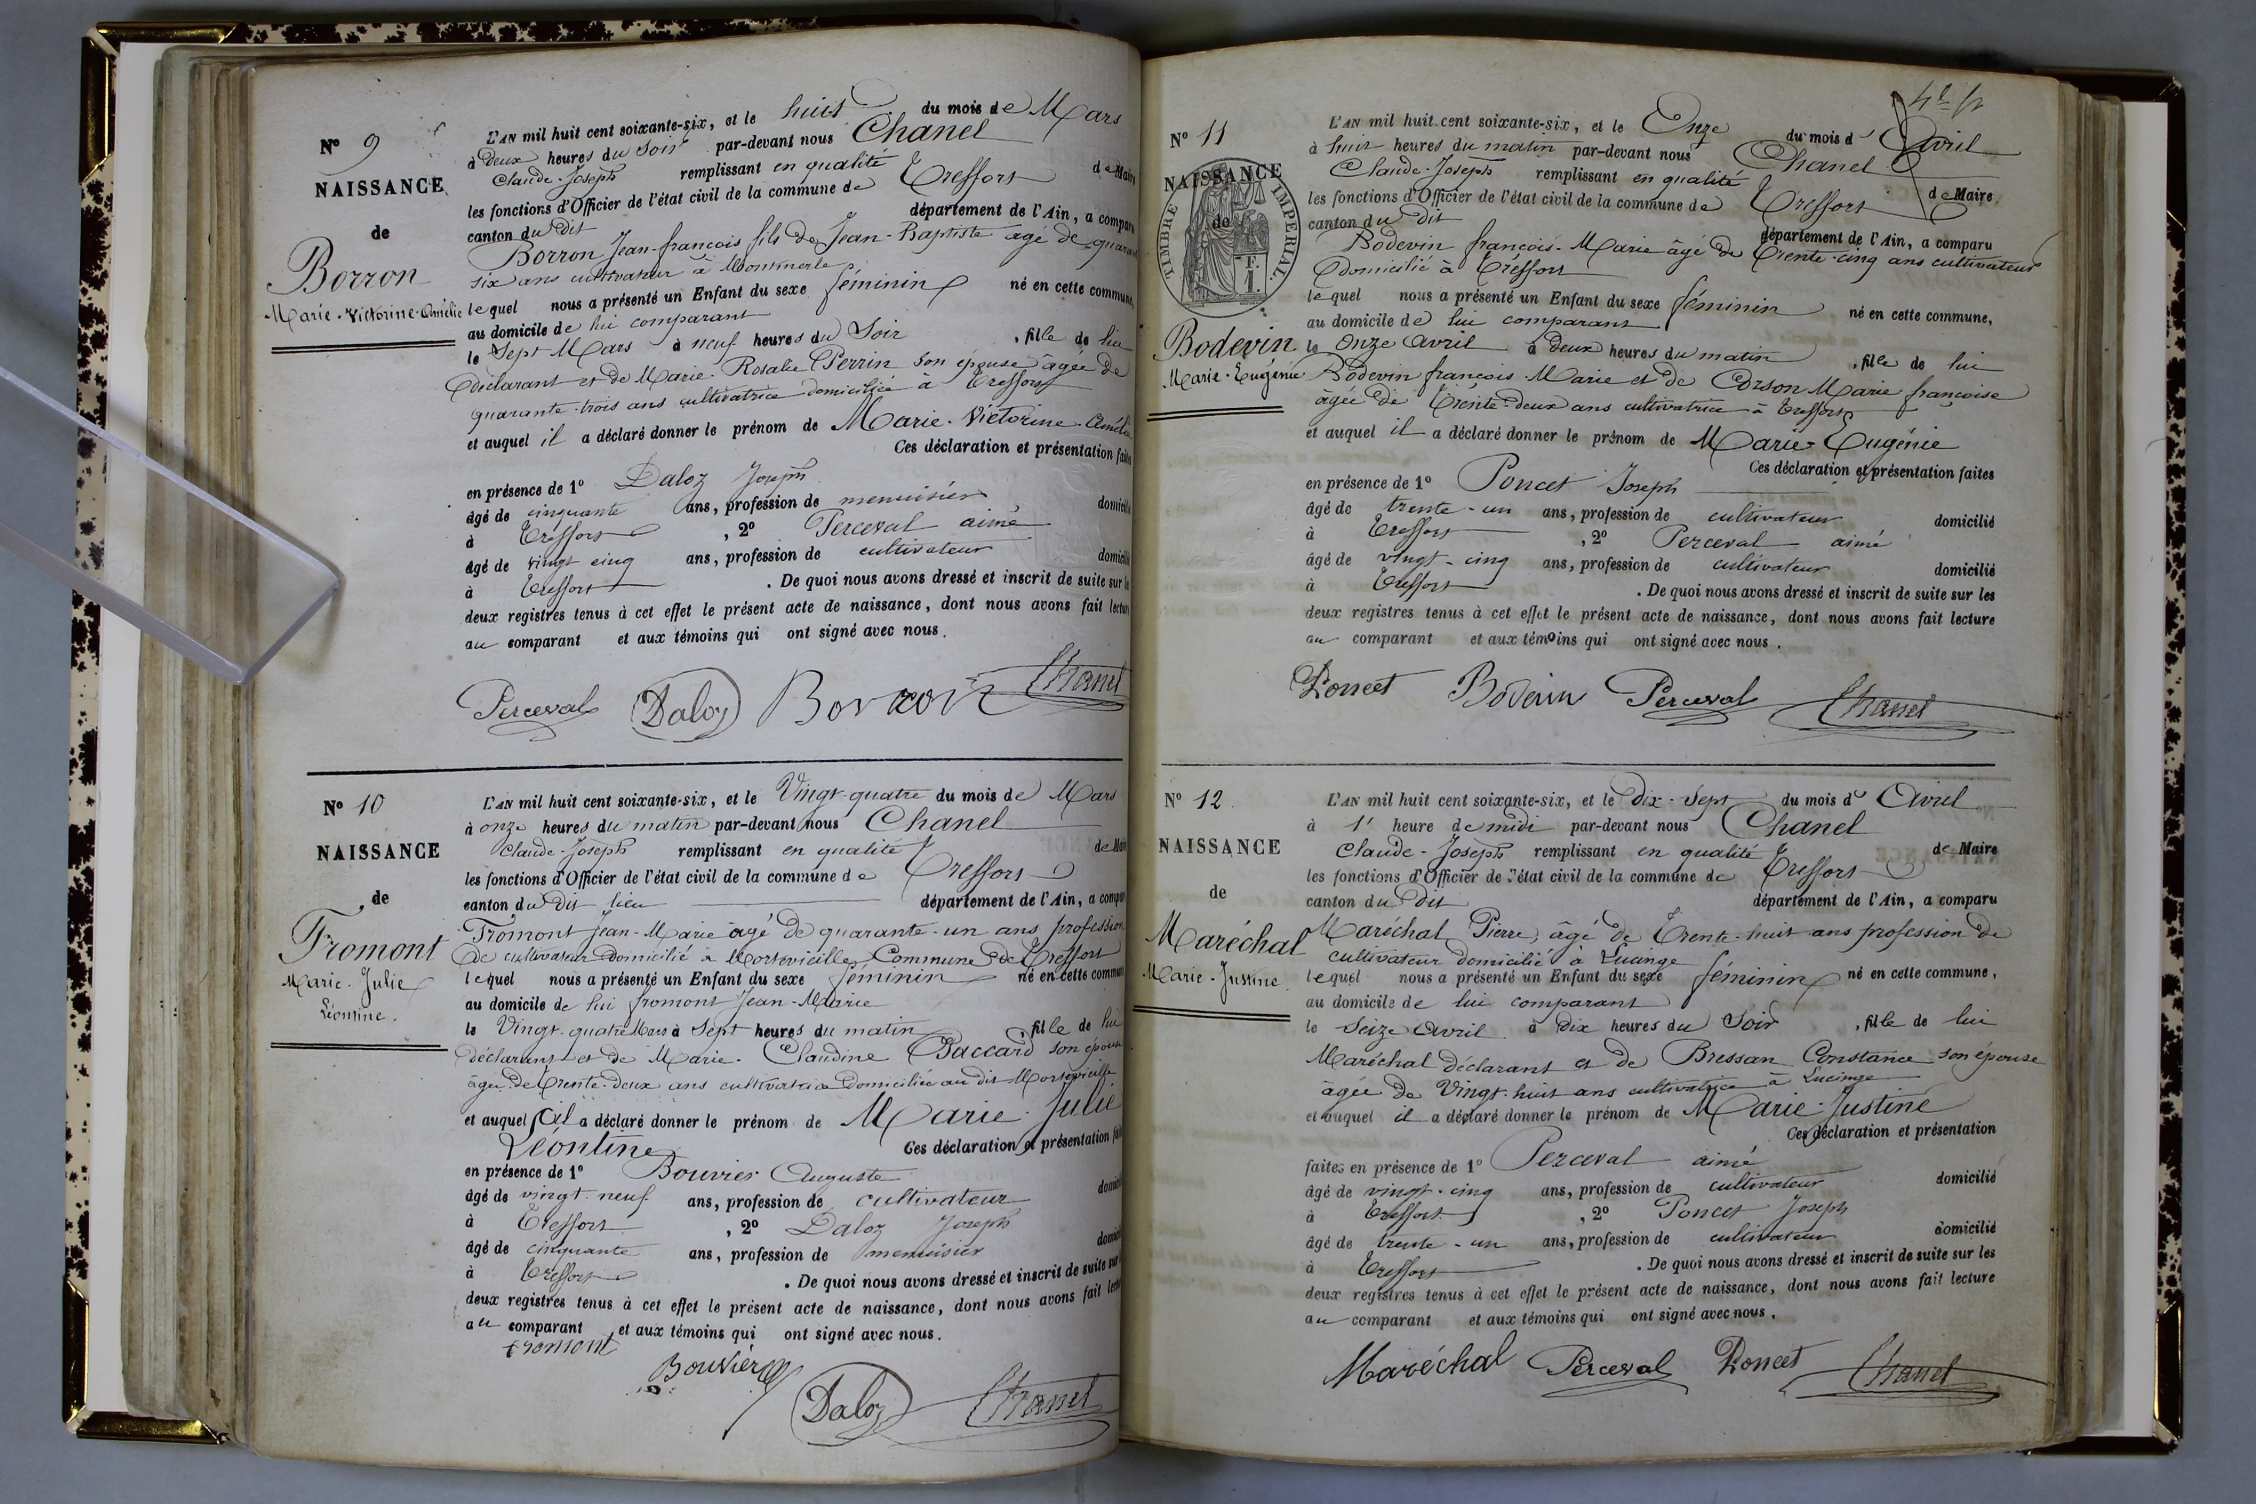 N° 9
NAISSANCE
de
Borron
Marie-Victorine-Amélie
L'AN mil huit cent soixante-six, et le huit du mois de Mars
à deux heures du soir par-devant nous Chanel
Claude-Joseph remplissant en qualité de Maire
les fonctions d'Officier de l'état civil de la commune de Treffort
canton du dit département de l'Ain, a comparu
Borron Jean-françois fils de Jean-Baptiste agé de quarante
six ans cultivateur à Montmerle
lequel nous a présenté un Enfant du sexe féminin né en cette commune,
au domicile de lui comparant
le Sept Mars à neuf heures du Soir, fille de lui
déclarant et de Marie-Rosalie Perrin son épouse âgée de
quarante-trois ans cultivatrice domiciliée à Treffort
et auquel il a déclaré donner le prénom de Marie-Victorine-Amélie
Ces déclaration et présentation faites
en présence de 1° Daloz Joseph
âgé de cinquante ans, profession de menuisier domicilié
à Treffort, 2° Perceval aimé
âgé de vingt cinq ans, profession de cultivateur domicilié
à Treffort. De quoi nous avons dressé et inscrit de suite sur les
deux registres tenus à cet effet le présent acte de naissance, dont nous avons fait lecture
au comparant et aux témoins qui ont signé avec nous.
Perceval Daloz Borron Chanel
N° 10
NAISSANCE
de
Fromont
Marie-Julie
Léontine.
L'AN mil huit cent soixante-six, et le Vingt-quatre du mois de Mars
à onze heures du matin par-devant nous Chanel
Claude-Joseph remplissant en qualité de Maire
les fonctions d'Officier de l'état civil de la commune de Treffort
canton du dit lieu département de l'Ain, a comparu
Fromont Jean-Marie âgé de quarante-un ans profession
de cultivateur domicilié à Mortevieille Commune de Treffort
lequel nous a présenté un Enfant du sexe féminin né en cette commune
au domicile de lui fromont Jean-Marie
le Vingt-quatre Mars à Sept heures du matin, fille de lui
déclarant et de Marie-Claudine Baccard son épouse
âgée de Trente-deux ans cultivatrice domiciliée au dit Mortevieille
et auquel il a déclaré donner le prénom de Marie-Julie
Léontine Ces déclaration et présentation faites
en présence de 1° Bouvier Auguste
âgé de vingt-neuf ans, profession de cultivateur domicilié
à Treffort, 2° Daloz Joseph
âgé de cinquante ans, profession de menuisier domicilié
à Treffort. De quoi nous avons dressé et inscrit de suite sur les
deux registres tenus à cet effet le présent acte de naissance, dont nous avons fait lecture
au comparant et aux témoins qui ont signé avec nous.
fromont Bouvier Daloz Chanel
N° 11
NAISSANCE
de
TIMBRE IMPERIAL.
Bodevin
Marie-Eugénie
L'AN mil huit cent soixante-six, et le Onze du mois d'Avril
à huit heures du matin par-devant nous Chanel
Claude-Joseph remplissant en qualité de Maire
les fonctions d'Officier de l'état civil de la commune de Treffort
canton du dit département de l'Ain, a comparu
Bodevin françois-Marie âgé de Trente-cinq ans cultivateur
domicilié à Tréffort
lequel nous a présenté un Enfant du sexe féminin né en cette commune,
au domicile de lui comparant
le onze avril à deux heures du matin, fille de lui
Bodevin françois-Marie et de Corson Marie françoise
âgée de Trente-deux ans cultivatrice à Treffort
et auquel il a déclaré donner le prénom de Marie-Eugénie
Ces déclaration et présentation faites
en présence de 1° Poncet Joseph
âgé de trente-un ans, profession de cultivateur domicilié
à Treffort, 2° Perceval aimé
âgé de vingt-cinq ans, profession de cultivateur domicilié
à Treffort. De quoi nous avons dressé et inscrit de suite sur les
deux registres tenus à cet effet le présent acte de naissance, dont nous avons fait lecture
au comparant et aux témoins qui ont signé avec nous.
Poncet Bodevin Perceval Chanel
N° 12
NAISSANCE
de
Maréchal
Marie-Justine
L'AN mil huit cent soixante-six, et le dix-Sept du mois d'Avril
à 1' heure de midi par-devant nous Chanel
Claude-Joseph remplissant en qualité de Maire
les fonctions d'Officier de l'état civil de la commune de Treffort
canton du dit département de l'Ain, a comparu
Maréchal Pierre, âgé de Trente-huit ans profession de
cultivateur domicilié à Lucinge
lequel nous a présenté un Enfant du sexe féminin né en cette commune,
au domicile de lui comparant
le Seize Avril à dix heures du Soir, fille de lui
Maréchal déclarant et de Bressan Constance son épouse
âgée de Vingt-huit ans cultivatrice à Lucinge
et auquel il a déclaré donner le prénom de Marie-Justine
Ces déclaration et présentation
faites en présence de 1° Perceval aimé
âgé de vingt-cinq ans, profession de cultivateur domicilié
à Treffort, 2° Poncet Joseph
âgé de trente-un ans, profession de cultivateur domicilié
à Treffort. De quoi nous avons dressé et inscrit de suite sur les
deux registres tenus à cet effet le présent acte de naissance, dont nous avons fait lecture
au comparant et aux témoins qui ont signé avec nous.
Maréchal Perceval Poncet Chanel